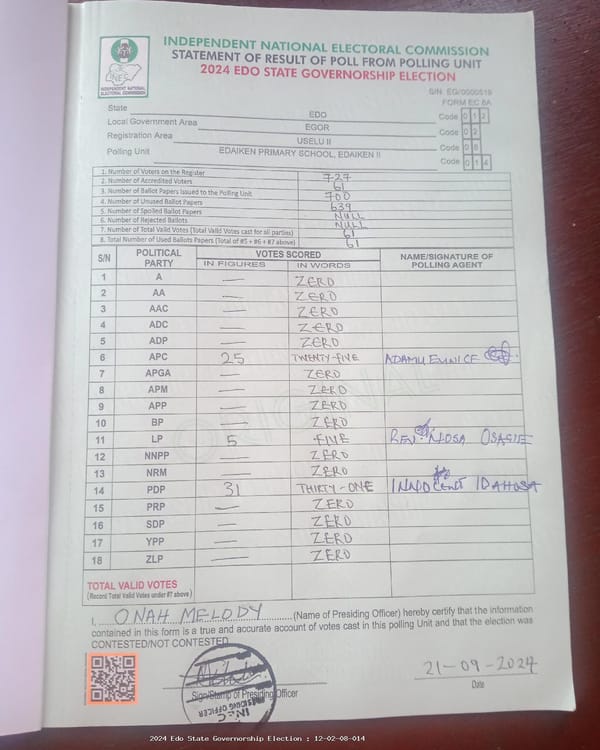 INDEPENDENT NATIONAL ELECTORAL COMMISSION
STATEMENT OF RESULT OF POLL FROM POLLING UNIT
2024 EDO STATE GOVERNORSHIP ELECTION
INEC
INDEPENDENT NATIONAL ELECTORAL COMMISSION
S/N: EG/0000519
FORM EC 8A
State EDO Code 0 1 2
Local Government Area EGOR Code 0 2
Registration Area USELU II Code 0 8
Polling Unit EDAIKEN PRIMARY SCHOOL, EDAIKEN II Code 0 1 4
1. Number of Voters on the Register 727
2. Number of Accredited Voters 61
3. Number of Ballot Papers Issued to the Polling Unit 700
4. Number of Unused Ballot Papers 639
5. Number of Spoiled Ballot Papers NULL
6. Number of Rejected Ballots NULL
7. Number of Total Valid Votes (Total Valid Votes cast for all parties) 61
8. Total Number of Used Ballots Papers (Total of #5 + #6 + #7 above) 61
S/N POLITICAL PARTY VOTES SCORED NAME/SIGNATURE OF POLLING AGENT
IN FIGURES IN WORDS
1 A — ZERO
2 AA — ZERO
3 AAC — ZERO
4 ADC — ZERO
5 ADP — ZERO
6 APC 25 TWENTY-FIVE ADAMU EUNICE
7 APGA — ZERO
8 APM — ZERO
9 APP — ZERO
10 BP — ZERO
11 LP 5 FIVE REV NIOSA OSAGIE
12 NNPP — ZERO
13 NRM — ZERO
14 PDP 31 THIRTY-ONE INNOCENT IDAHOSA
15 PRP — ZERO
16 SDP — ZERO
17 YPP — ZERO
18 ZLP — ZERO
TOTAL VALID VOTES
(Record Total Valid Votes under #7 above)
I, ONAH MELODY (Name of Presiding Officer) hereby certify that the information
contained in this form is a true and accurate account of votes cast in this polling Unit and that the election was
CONTESTED/NOT CONTESTED
21-09-2024
Sign/Stamp of Presiding Officer
Date
INEC
PRESIDING OFFICER
2024 Edo State Governorship Election : 12-02-08-014